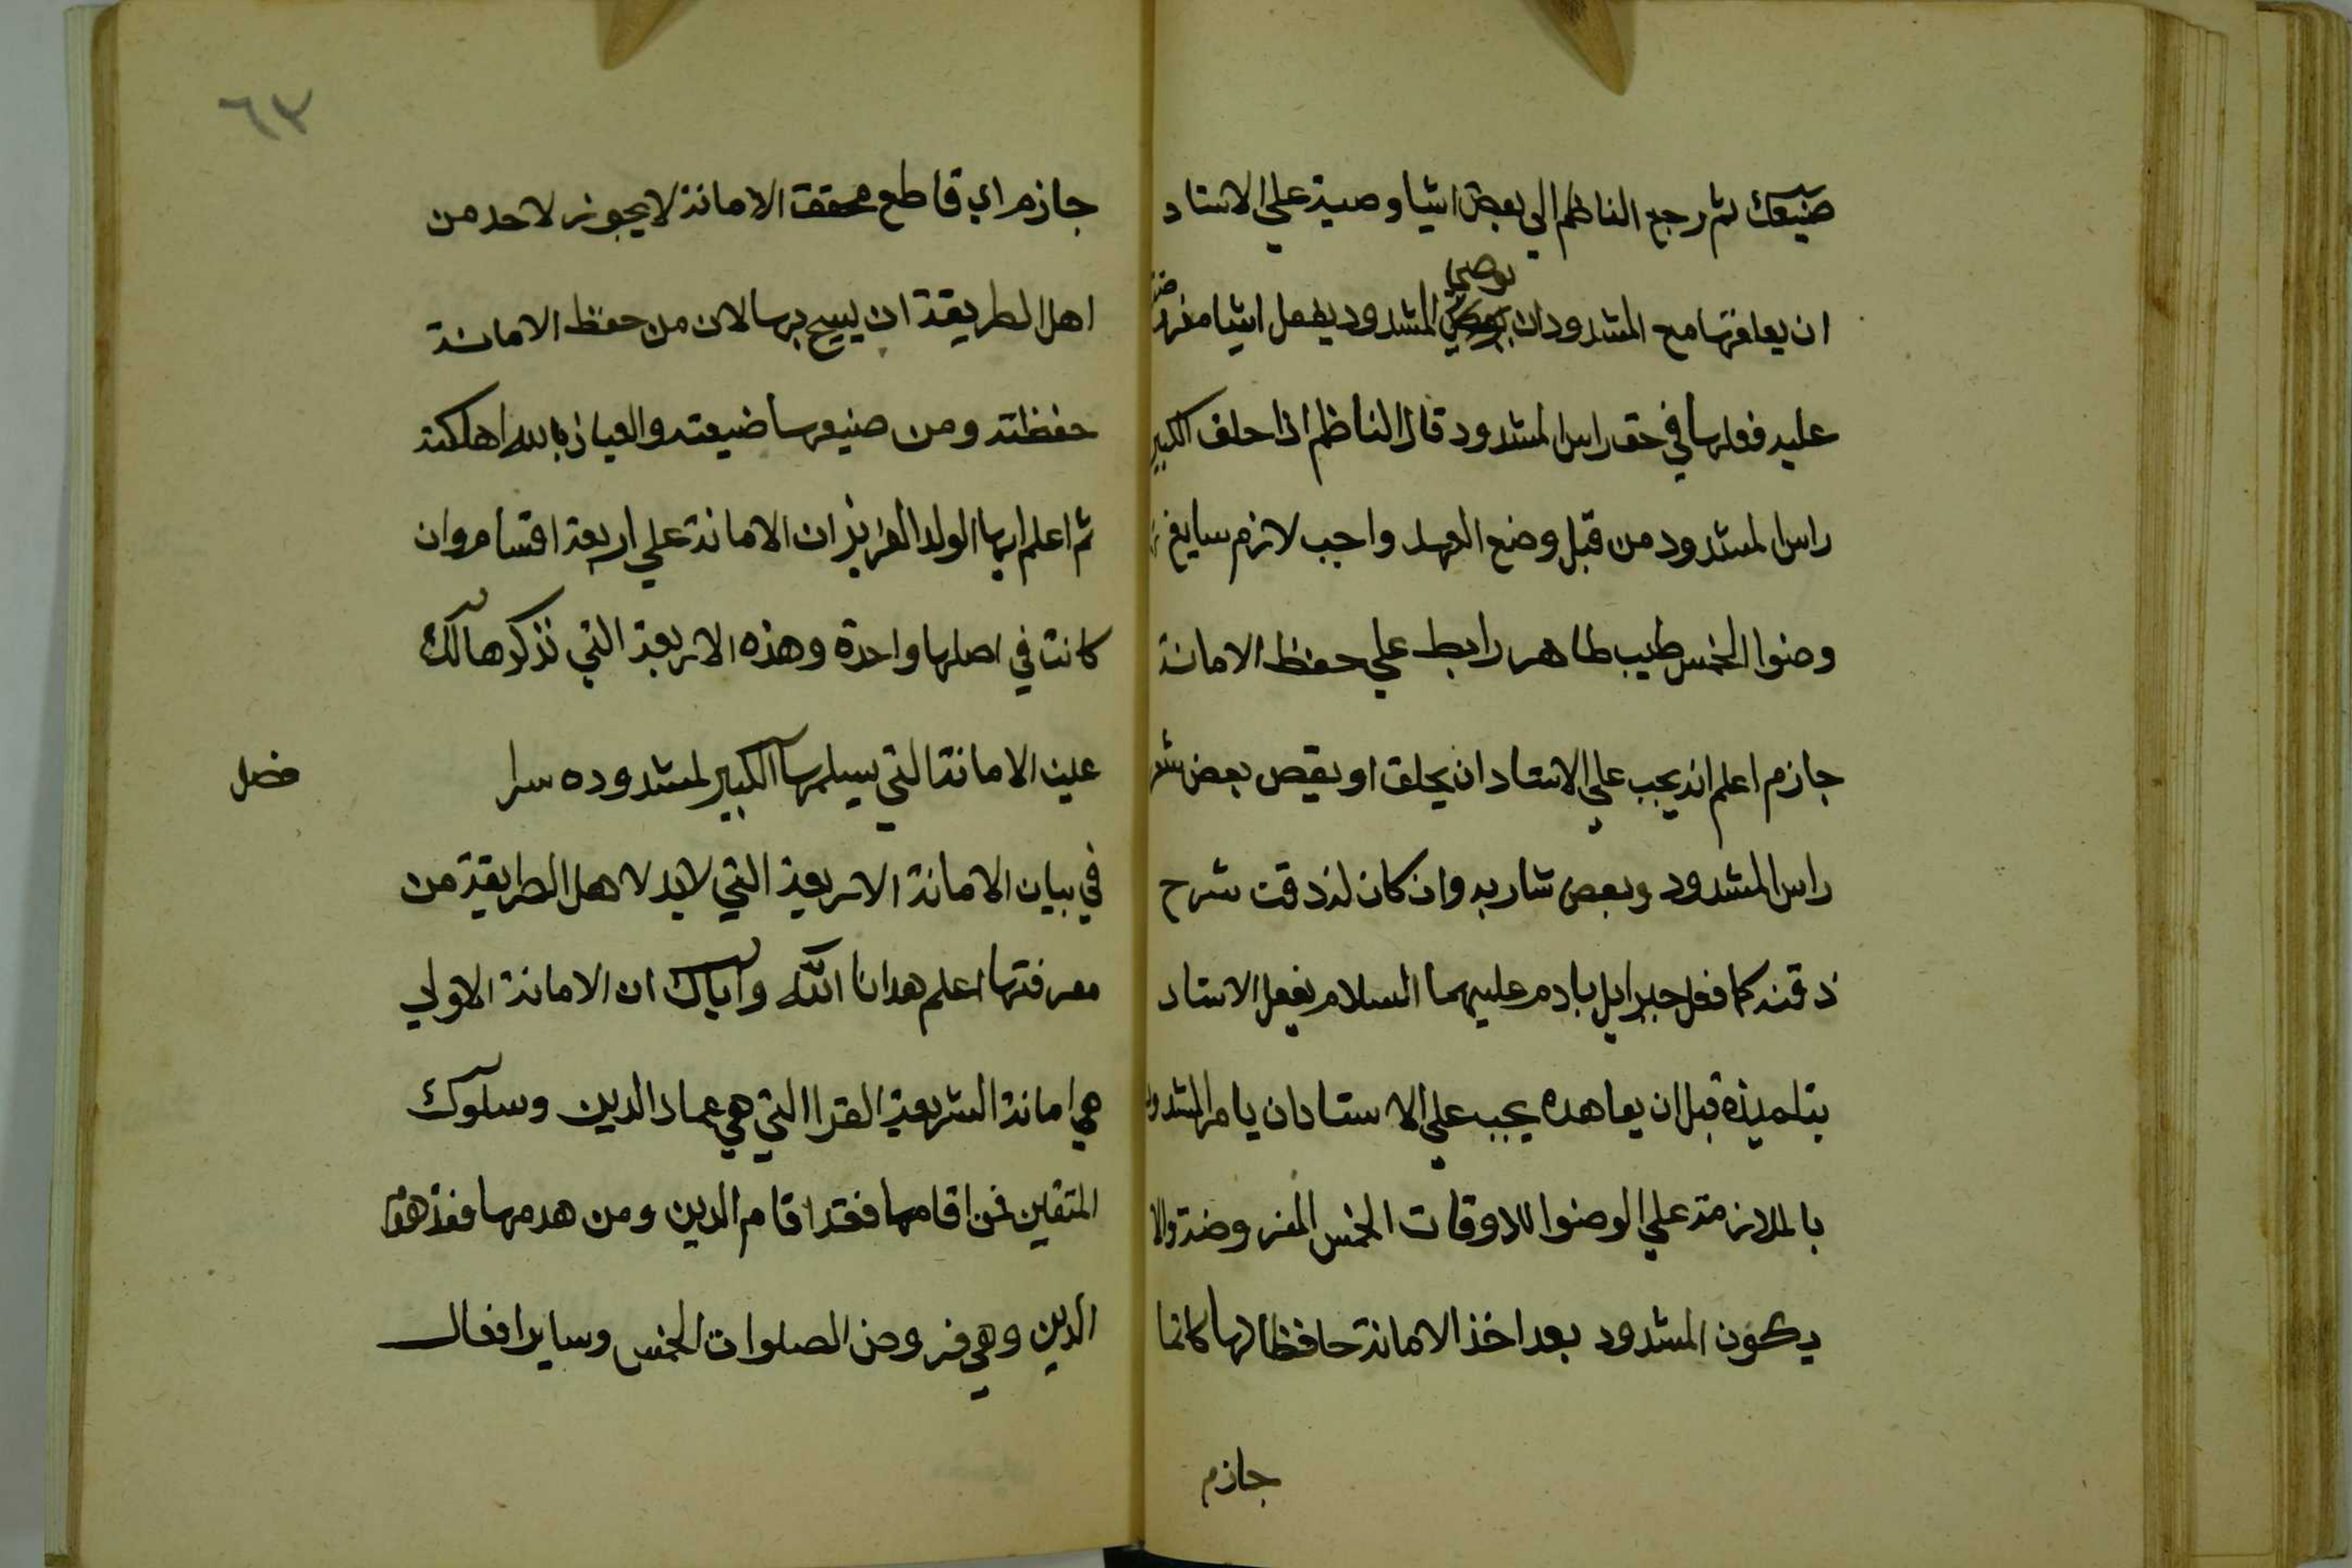 صنيعك ثم رجع الناظم الي بعض اشيا وصية علي الاستاد
ان يعلمها مع المشدود ان يوصي المشدود يفعل اشيا مفترضة
عليه فعلها في حق راس المشدود قال الناظم اذا حلف الكبير
راس المشدود من قبل وضع العهد واجب لازم سايغ
وضوا الخمس طيب طاهر رابط علي حفظ الامانة
جازم اعلم انه يجب علي الاستاد ان يحلق او يقص بعض شعر
راس المشدود وبعض شاربه وان كان له ذقن سرح
ذقنه كما فعل جبرايل بادم عليهما السلام يفعل الاستاد
بتلميذه قبل ان يعاهده يجب علي الاستاد ان يامر المشدود
بالملازمة علي الوضوا للاوقات الخمس المفروضة والا
يكون المشدود بعد اخذ الامانة حافظا لها كاتما
جازم
٦٣
جازم اي قاطع محققة الامانة لا يجوز لاحد من
اهل الطريقة ان يبيح بها لان من حفظ الامانة
حفظته ومن ضيعها ضيعته والعياذ بالله اهلكته
ثم اعلم ايها الولد العزيز ان الامانة علي اربعة اقسام وان
كانت في اصلها واحدة وهذه الاربعة التي نذكرها لك
عين الامانة التي يسلمها الكبير لمشدوده سرا
فصل
في بيان الامانة الاربعة التي لابد لاهل الطريقة من
معرفتها اعلم هدانا الله واياك ان الامانة الاولي
هي امانة الشريعة الغرا التي هي عماد الدين وسلوك
المتقين فمن اقامها فقد اقام الدين ومن هدمها فقد هدم
الدين وهي فروض الصلوات الخمس وساير افعال